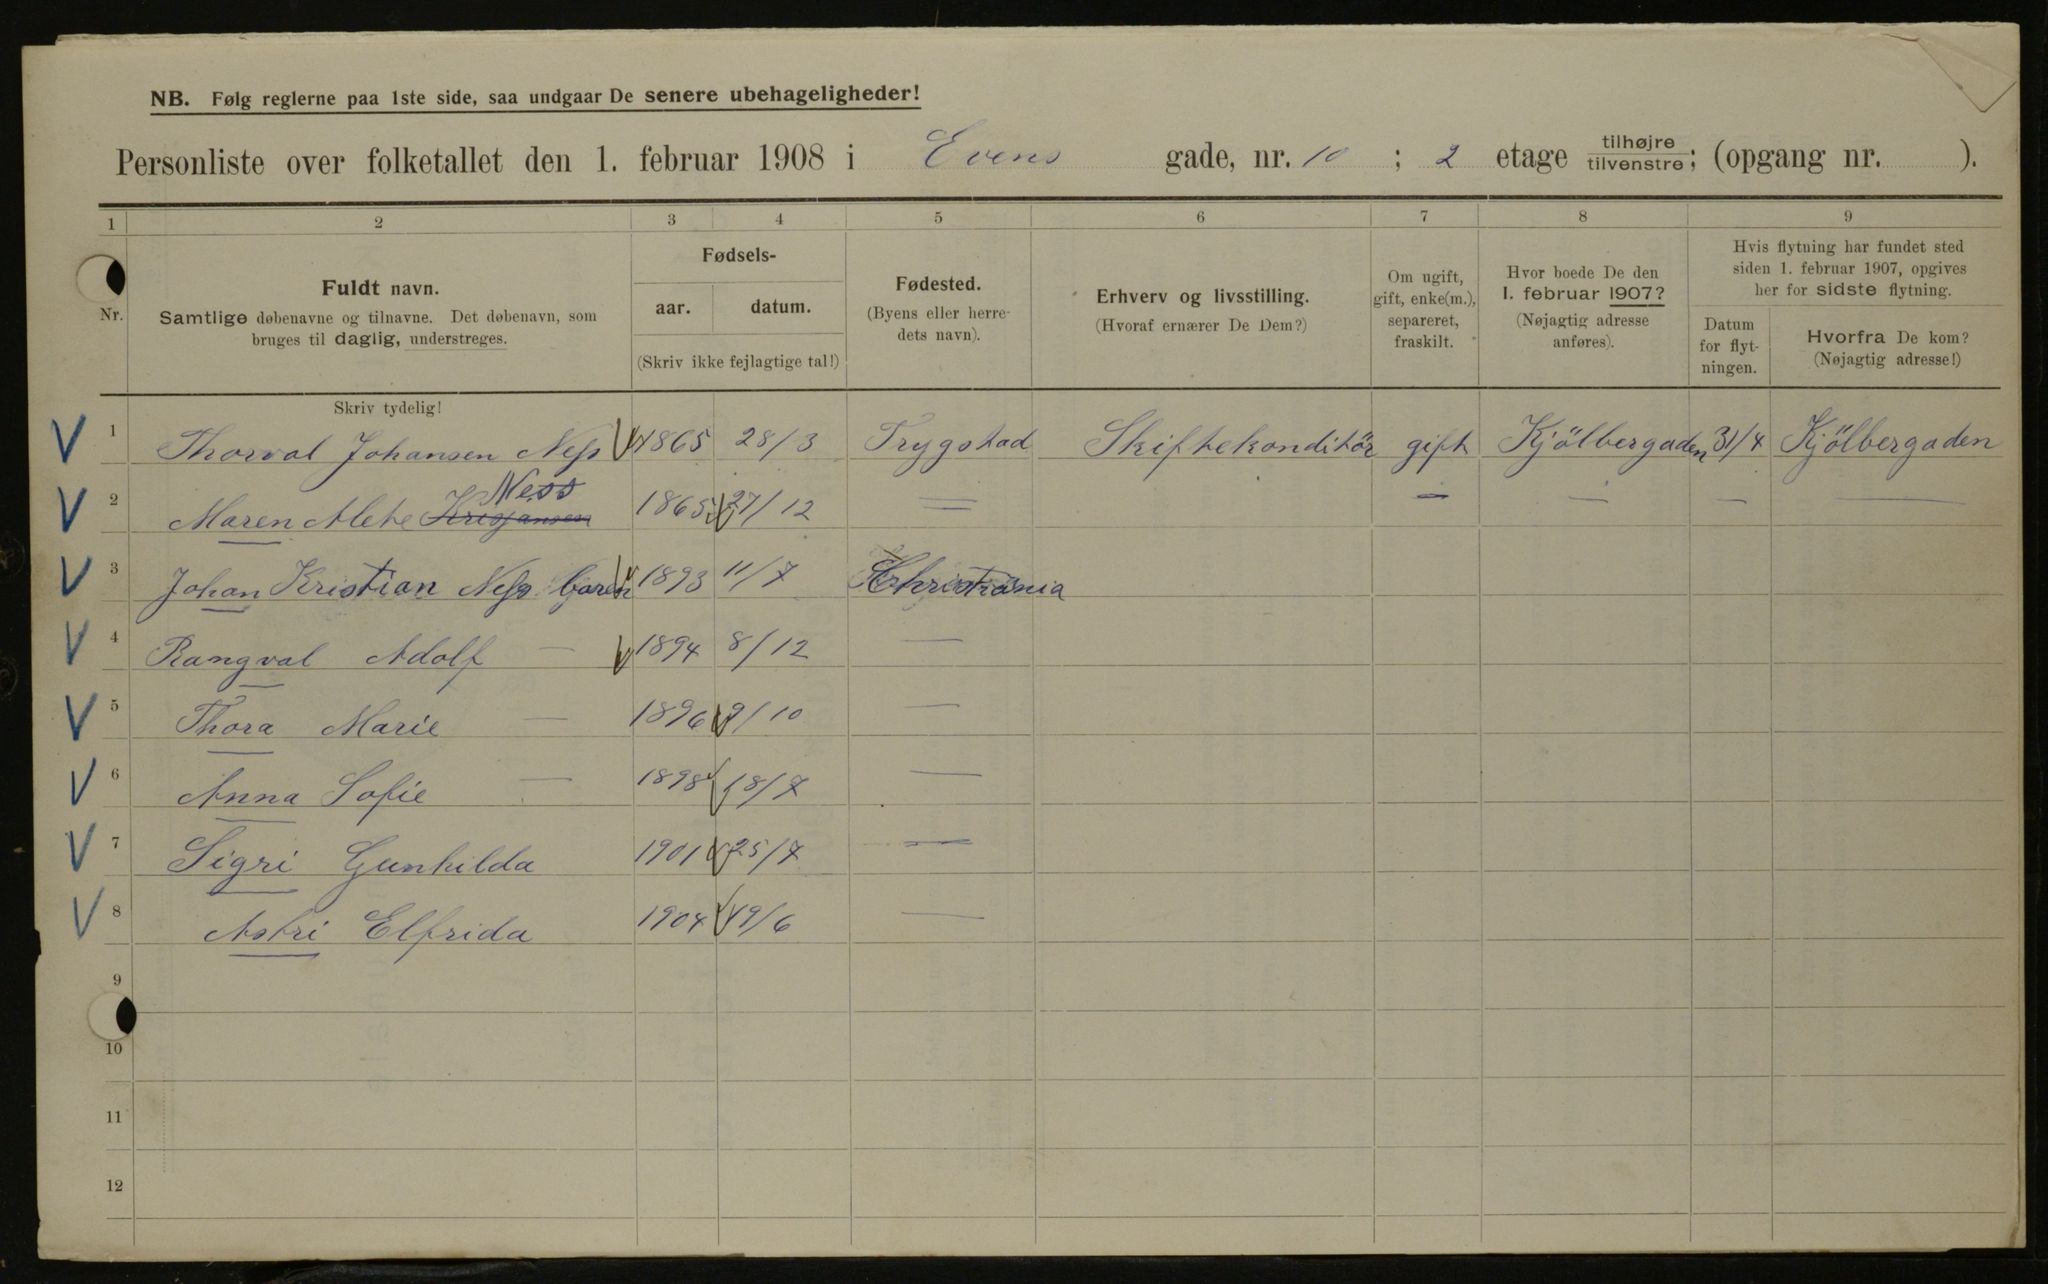 NB. Følg reglerne paa 1ste side, saa undgaar De senere ubehageligheder!
Personliste over folketallet den 1. februar 1908 i Evens gade, nr. 10 ; 2 etage tilhøjre tilvenstre; (opgang nr. ).
1 2 3 4 5 6 7 8 9
Nr.
Fuldt navn.
Samtlige døbenavne og tilnavne. Det døbenavn, som
bruges til daglig, understreges.
Fødsels-
aar. datum.
(Skriv ikke fejlagtige tal!)
Fødested.
(Byens eller herre-
dets navn).
Erhverv og livsstilling.
(Hvoraf ernærer De Dem?)
Om ugift,
gift, enke(m.),
separeret,
fraskilt.
Hvor boede De den
1. februar 1907?
(Nøjagtig adresse
anføres).
Hvis flytning har fundet sted
siden 1. februar 1907, opgives
her for sidste flytning.
Datum
for flyt-
ningen.
Hvorfra De kom?
(Nøjagtig adresse!)
Skriv tydelig!
1 Thorval Johansen Ness 1865 28/3 Trygstad Skiftekonditör gift Kjölbergaden 31/4 Kjölbergaden
Ness
2 Maren Alete Krisjansen 1865 27/12 — — — — —
3 Johan Kristian Ness 1893 11/7 Christiania
4 Rangval Adolf — 1894 8/12 —
5 Thora Marie — 1896 9/10 —
6 Anna Sofie — 1898 18/7 —
7 Sigri Gunhilda 1901 25/7 —
8 Astri Elfrida 1904 19/6 —
9
10
11
12